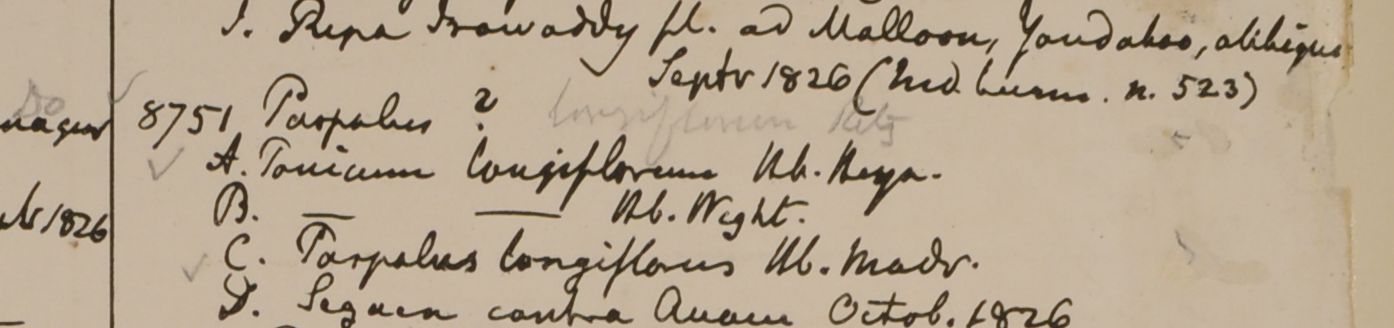 I. Ripa Irawaddy fl. ad Malloon, Yandaboo, alibique
Septr 1826 (Ind. burm. n. 523)
Do
8751 Paspalus ? longiflorum Retz
A. Panicum longiflorum Hb. Heyn.
B. — — Hb. Wight.
1826
C. Paspalus longiflorus Hb. Madr.
D. Segaen contra Avam Octob. 1826